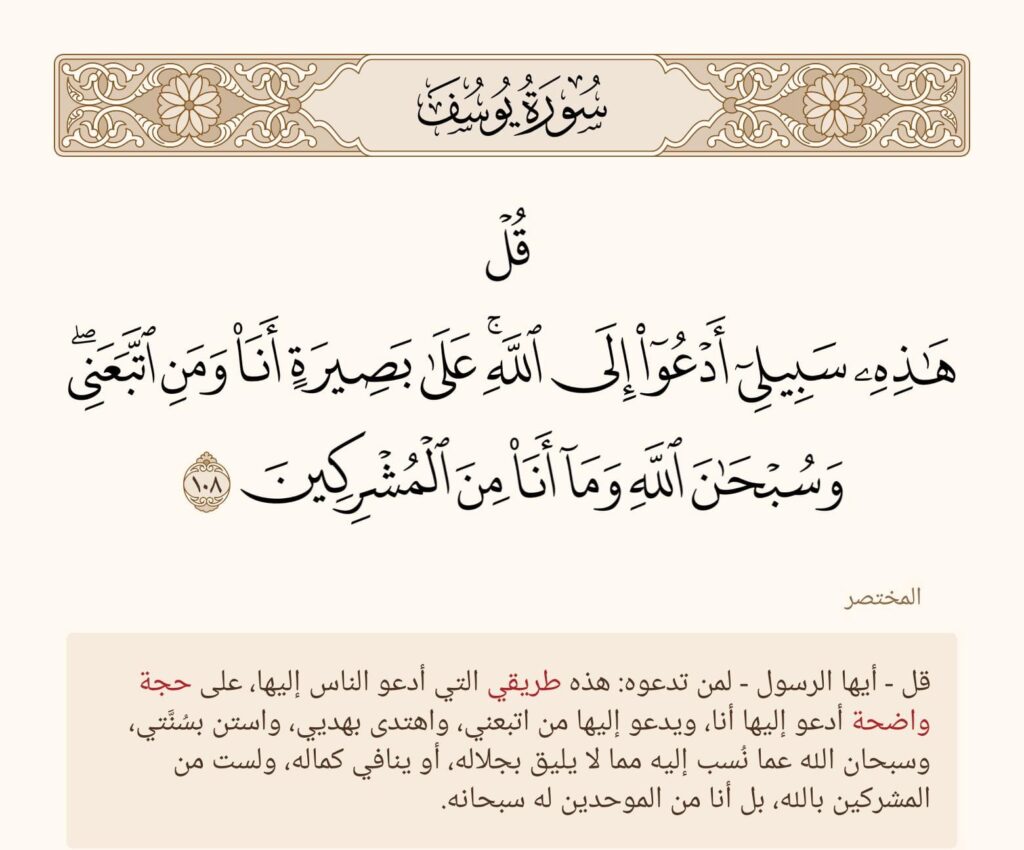 سُورَةُ يُوسُفَ
قُلۡ
هَٰذِهِۦ سَبِيلِيٓ أَدۡعُوٓاْ إِلَى ٱللَّهِۚ عَلَىٰ بَصِيرَةٍ أَنَا۠ وَمَنِ ٱتَّبَعَنِيۖ
وَسُبۡحَٰنَ ٱللَّهِ وَمَآ أَنَا۠ مِنَ ٱلۡمُشۡرِكِينَ ١٠٨
المختصر
قل - أيها الرسول - لمن تدعوه: هذه طريقي التي أدعو الناس إليها، على حجة
واضحة أدعو إليها أنا، ويدعو إليها من اتبعني، واهتدى بهديي، واستن بسُنَّتي،
وسبحان الله عما نُسب إليه مما لا يليق بجلاله، أو ينافي كماله، ولست من
المشركين بالله، بل أنا من الموحدين له سبحانه.